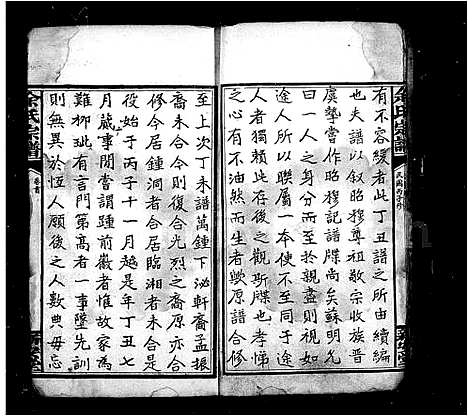 有不容緩者此丁丑譜之所由續編
也夫譜以敘昭穆尊祖敬宗收族晉
虞摯嘗作昭穆記譜牒尚矣蘇明允
曰一人之身分而至於親盡則視如
途人所以聯屬一本使不至同于途
人者獨賴此存之觀斯牒也孝悌
之心有不油然而生者歟原譜合修
至上次丁未譜萬鍾下泌軒裔孟振
裔未合今則復合光烈之裔原亦合
修今居鍾洞者合居臨湘者未合是
役始于丙子十一月越是年丁丑七
月蕆事閱嘗謂踵前徽者惟故家為
難柳玭有言門第高者一事墜先訓
則無異於恆人願後之人數典毋忘
余氏宗譜
卷首